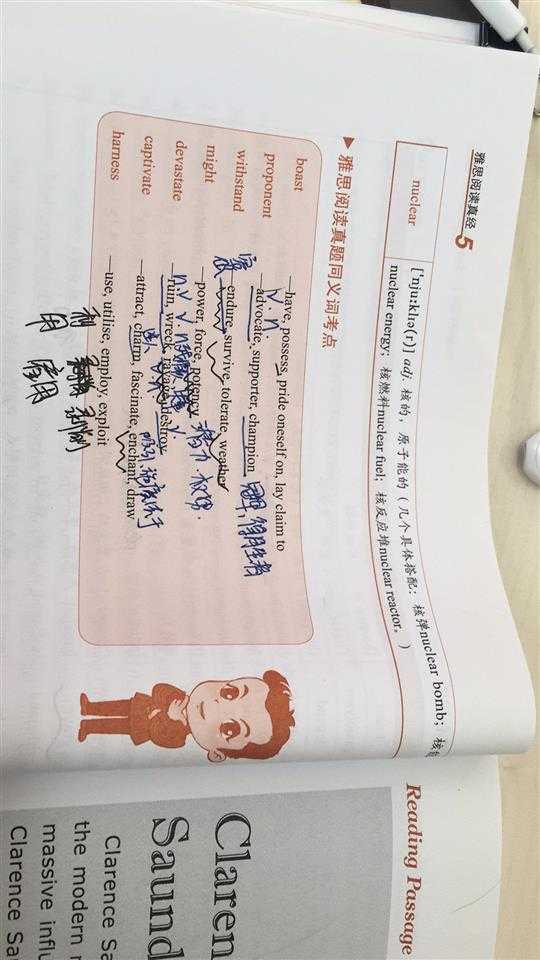 雅思阅读真经5
nuclear
['njuːkliə(r)] adj. 核的，原子能的（几个具体搭配：核弹nuclear bomb；核能
nuclear energy；核燃料nuclear fuel；核反应堆nuclear reactor。）
▶ 雅思阅读真题同义词考点
boast —have, possess, pride oneself on, lay claim to
v. n.
proponent —advocate, supporter, champion
withstand —endure, survive, tolerate, weather
might —power, force, potency 潜力 权势.
devastate —ruin, wreck, ravage, destroy
captivate —attract, charm, fascinate, enchant, draw
harness —use, utilise, employ, exploit
利用
Reading Passage
Claren
Saund
Clarence Sa
the modern r
massive influ
Clarence Sa